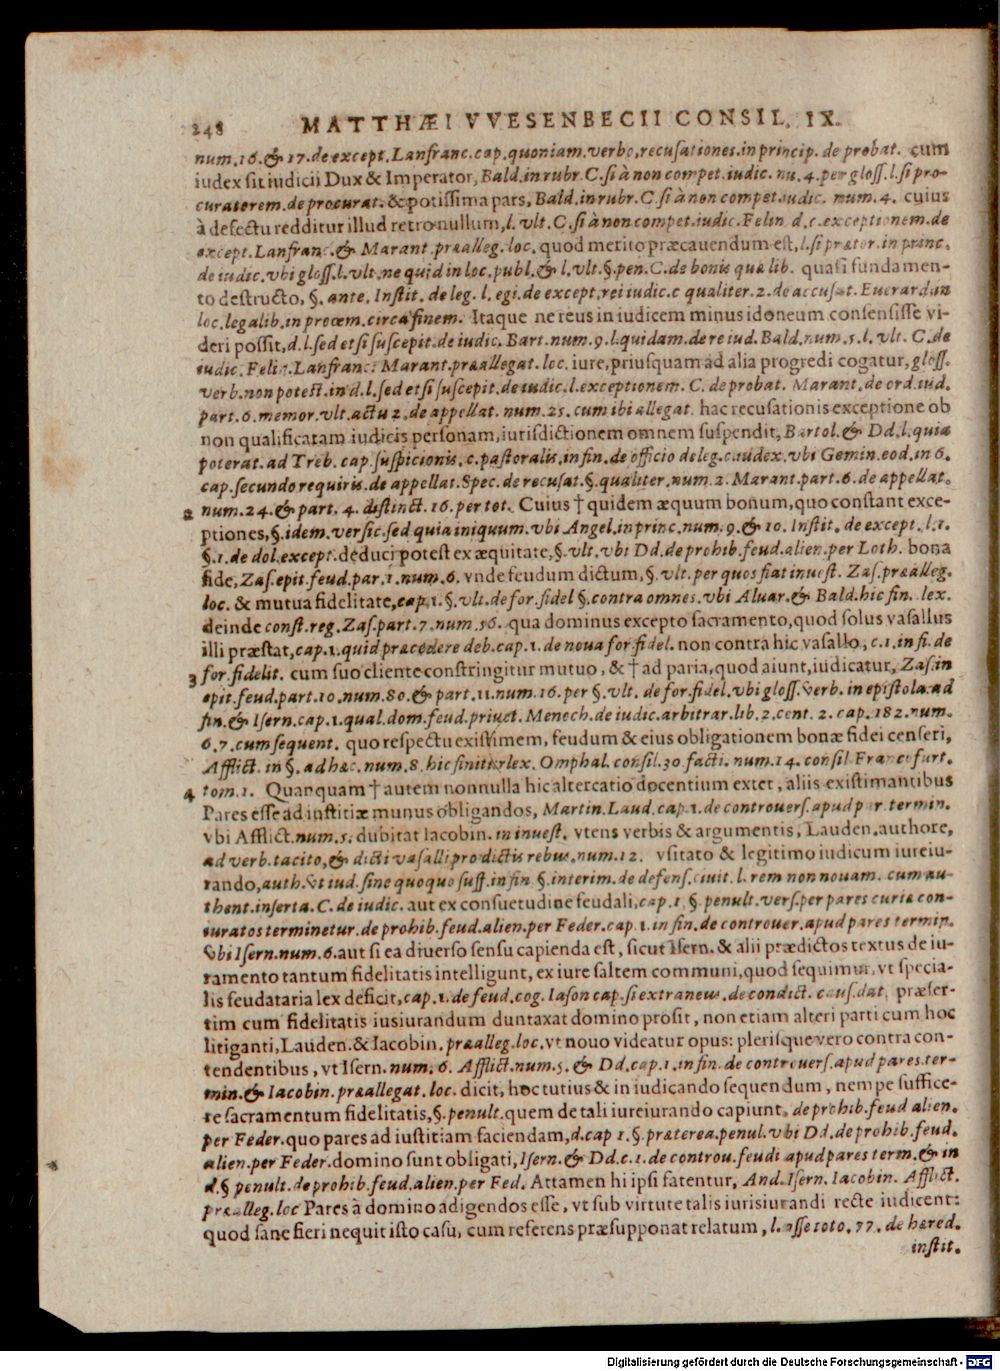 248 MATTHÆI VVESENBECII CONSIL. IX.
num.16.& 17.de except. Lanfranc.cap.quoniam.verbo,recusationes.in princip. de probat. cum
iudex sit iudicii Dux & Imperator, Bald.in rubr. C.si à non compet.iudic. nu. 4. per gloss.l.si pro-
curatorem.de procurat. & potissima pars, Bald.in rubr.C.si à non compet.iudic. num. 4. cuius
à defectu redditur illud retro nullum, l. vlt. C.si à non compet.iudic. Felin d.c.exceptionem.de
except.Lanfranc.& Marant.præalleg.loc. quod merito præcauendum est, l.si prætor.in princ.
de iudic.vbi gloss.l.vlt.ne quid in loc.publ.& l.vlt.§.pen.C.de bonis quæ lib. quasi fundamen-
to destructo, §. ante. Instit. de leg. l. egi.de except.rei iudic.c qualiter.2.de accusat. Euerard.in
loc.legalib.in proœm.circa finem. Itaque ne reus in iudicem minus idoneum consensisse vi-
deri possit, d.l.sed etsi suscepit.de iudic. Bart.num.9.l.quidam.de re iud. Bald.num.5.l. vlt. C.de
iudic. Felin.Lanfranc: Marant.præallegat.loc. iure, priusquam ad alia progredi cogatur, gloss.
verb.non potest.in d.l.sed etsi suscepit.de iudic.l.exceptionem. C. de probat. Marant.de ord.iud.
part.6.memor.vlt.actu 2.de appellat. num.25.cum ibi allegat. hac recusationis exceptione ob
non qualificatam iudicis personam, iurisdictionem omnem suspendit, Bartol.& Dd.l.quia
poterat.ad Treb. cap.suspicionis.c.pastoralis.in fin.de officio deleg.c.iudex.vbi Gemin.eod.in 6.
cap.secundo requiris.de appellat.Spec.de recusat.§.qualiter.num.2.Marant.part.6.de appellat.
2 num.24.& part. 4. distinct.16.per tot. Cuius † quidem æquum bonum, quo constant exce-
ptiones, §.idem.versic.sed quia iniquum.vbi Angel.in princ.num.9.& 10. Instit. de except. l.1.
§.1.de dol.except. deduci potest ex æquitate, §.vlt.vbi Dd.de prohib.feud.alien.per Loth. bona
fide, Zas.epit.feud.par.1.num.6. vnde feudum dictum, §. vlt.per quos fiat inuest. Zas.præalleg.
loc. & mutua fidelitate, cap.1.§.vlt.de for.fidel §.contra omnes.vbi Aluar.& Bald.hic fin. lex.
deinde const.reg.Zas.part.7.num.56. qua dominus excepto sacramento, quod solus vasallus
illi præstat, cap.1.quid præcedere deb.cap.1.de noua for.fidel. non contra hic vasallo, c.1.in fi.de
3 for.fidelit. cum suo cliente constringitur mutuo, & † ad paria, quod aiunt, iudicatur, Zas.in
epit.feud.part.10.num.80.& part.11.num.16.per §.vlt. de for.fidel.vbi gloss.verb. in epistola.ad
fin.& Isern.cap.1.qual.dom.feud.priuet. Menoch.de iudic.arbitrar.lib.2.cent. 2. cap.182.num.
6.7.cum sequent. quo respectu existimem, feudum & eius obligationem bonæ fidei censeri,
Afflict. in §. ad hæc.num.8.hic finitur lex. Omphal.consil.30.facti. num.14. consil Francofurt.
4 tom.1. Quanquam † autem nonnulla hic altercatio docentium extet, aliis existimantibus
Pares esse ad iustitiæ munus obligandos, Martin.Laud.cap.1.de controuers.apud par.termin.
vbi Afflict.num.5. dubitat Iacobin. in inuest. vtens verbis & argumentis, Lauden.authore,
ad verb.tacito,& dicti vasalli pro dictis rebus.num.12. vsitato & legitimo iudicum iureiu-
rando, auth.vt iud.sine quoquo suff.in fin §.interim.de defens.ciuit.l.rem non nouam. cum au-
thent.inserta.C.de iudic. aut ex consuetudine feudali, cap.1. §.penult.vers.per pares curiæ con-
iuratos terminetur.de prohib.feud.alien.per Feder.cap.1.in fin.de controuer.apud pares termin.
vbi Isern.num.6.aut si ea diuerso sensu capienda est, sicut Isern.& alii prædictos textus de iu-
ramento tantum fidelitatis intelligunt, ex iure saltem communi, quod sequimur, vt specia-
lis feudataria lex deficit, cap.1.de feud.cog. Iason cap.si extraneus.de condict. caus.dat. præser-
tim cum fidelitatis iusiurandum duntaxat domino prosit, non etiam alteri parti cum hoc
litiganti, Lauden.& Iacobin. præalleg.loc.vt nouo videatur opus: plerisque vero contra con-
tendentibus, vt Isern. num. 6. Afflict.num.5.& Dd.cap.1.in fin.de controuers.apud pares ter-
min.& Iacobin.præallegat.loc. dicit, hoc tutius & in iudicando sequendum, nempe suffice-
re sacramentum fidelitatis, §.penult.quem de tali iureiurando capiunt. de prohib.feud alien.
per Feder.quo pares ad iustitiam faciendam, d.cap 1.§.præterea.penul.vbi Dd.de prohib.feud.
alien.per Feder.domino sunt obligati, Isern.& Dd.c.1.de controu.feudi apud pares term.& in
d.§ penult.de prohib.feud.alien.per Fed. Attamen hi ipsi fatentur, And.Isern. Iacobin. Afflict.
præalleg.loc Pares à domino adigendos esse, vt sub virtute talis iurisiurandi recte iudicent:
quod sane fieri nequit isto casu, cum referens præsupponat relatum, l.asse toto.77. de hered.
instit.
Digitalisierung gefördert durch die Deutsche Forschungsgemeinschaft - DFG